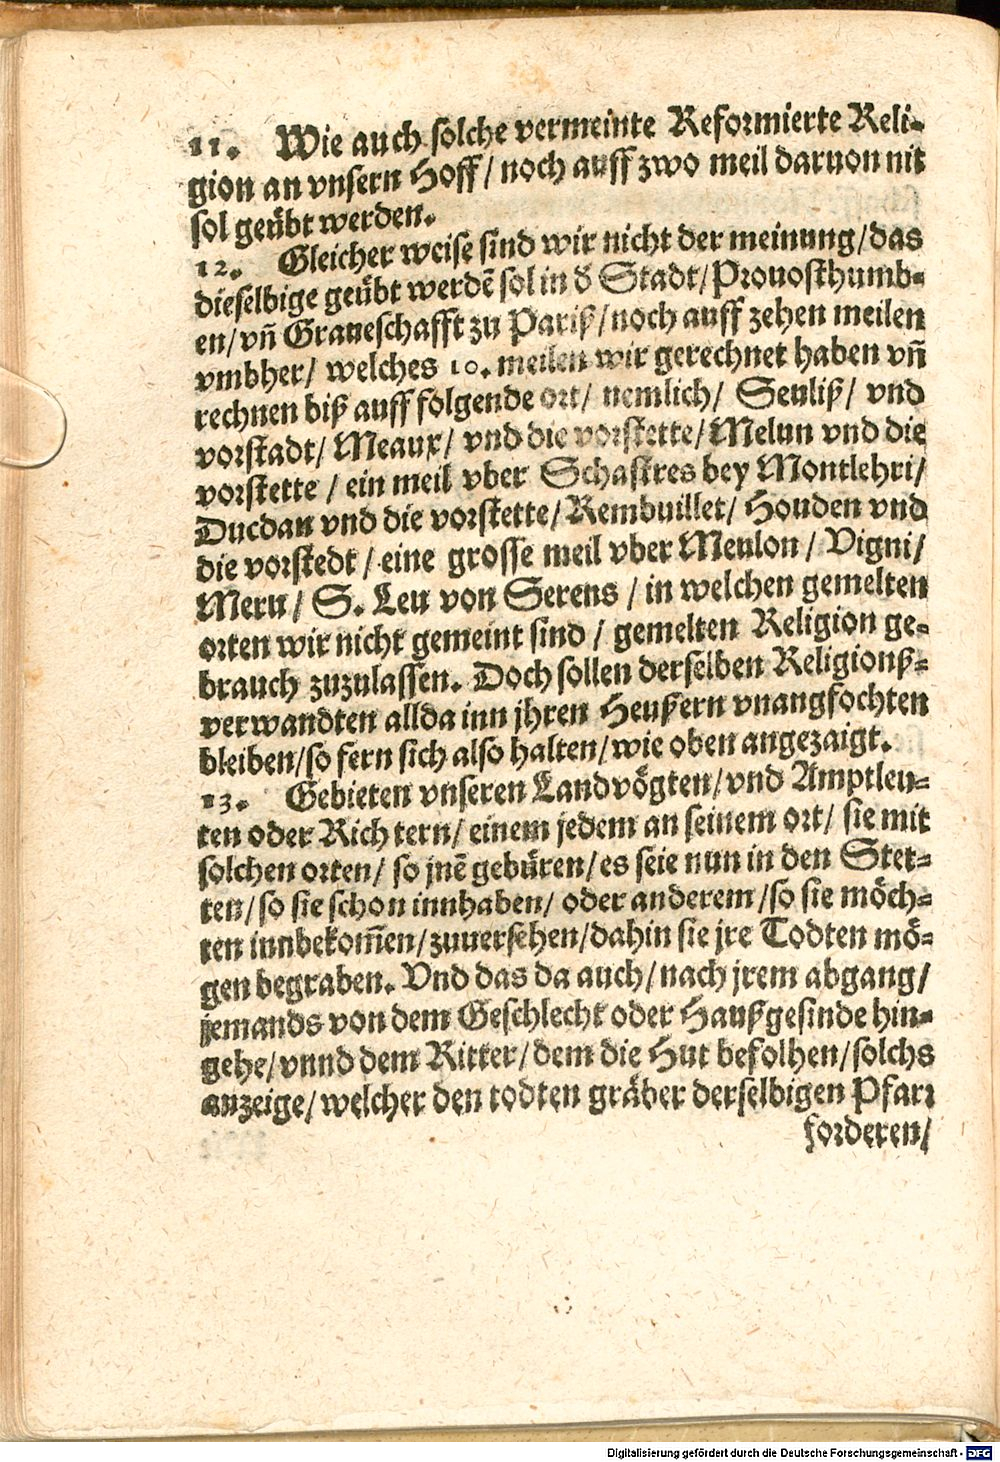 11. Wie auch solche vermeinte Reformierte Reli-
gion an vnsern Hoff / noch auff zwo meil daruon nit
sol geübt werden.
12. Gleicher weise sind wir nicht der meinung/das
dieselbige geübt werdē sol in d̄ Stadt/Prouosthumb-
en/vñ Graueschafft zu Pariß/noch auff zehen meilen
vmbher/ welches 10. meilen wir gerechnet haben vñ
rechnen biß auff folgende ort/ nemlich/ Senliß/ vnd
vorstadt/ Meaux/ vnd die vorstette/Melun vnd die
vorstette / ein meil vber Schastres bey Montlehri/
Ducdan vnd die vorstette/Rembuillet/ Houden vnd
die vorstedt / eine grosse meil vber Meulon / Vigni/
Meru / S. Leu von Serens / in welchen gemelten
orten wir nicht gemeint sind / gemelten Religion ge-
brauch zuzulassen. Doch sollen derselben Religionß-
verwandten allda inn jhren Heußern vnangfochten
bleiben/so fern sich also halten/wie oben angezaigt.
13. Gebieten vnseren Landvögten/vnd Amptleu-
ten oder Richtern/ einem jedem an seinem ort/ sie mit
solchen orten/ so jnē gebüren/es seie nun in den Stet-
ten/so sie schon innhaben/ oder anderem/so sie möch-
ten innbekom̄en/zuuersehen/dahin sie jre Todten mö-
gen begraben. Vnd das da auch/nach jrem abgang/
jemands von dem Geschlecht oder Haußgesinde hin-
gehe/vnnd dem Ritter/dem die Hut befolhen/solchs
anzeige/welcher den todten gräber derselbigen Pfarr
forderen/
Digitalisierung gefördert durch die Deutsche Forschungsgemeinschaft - DFG